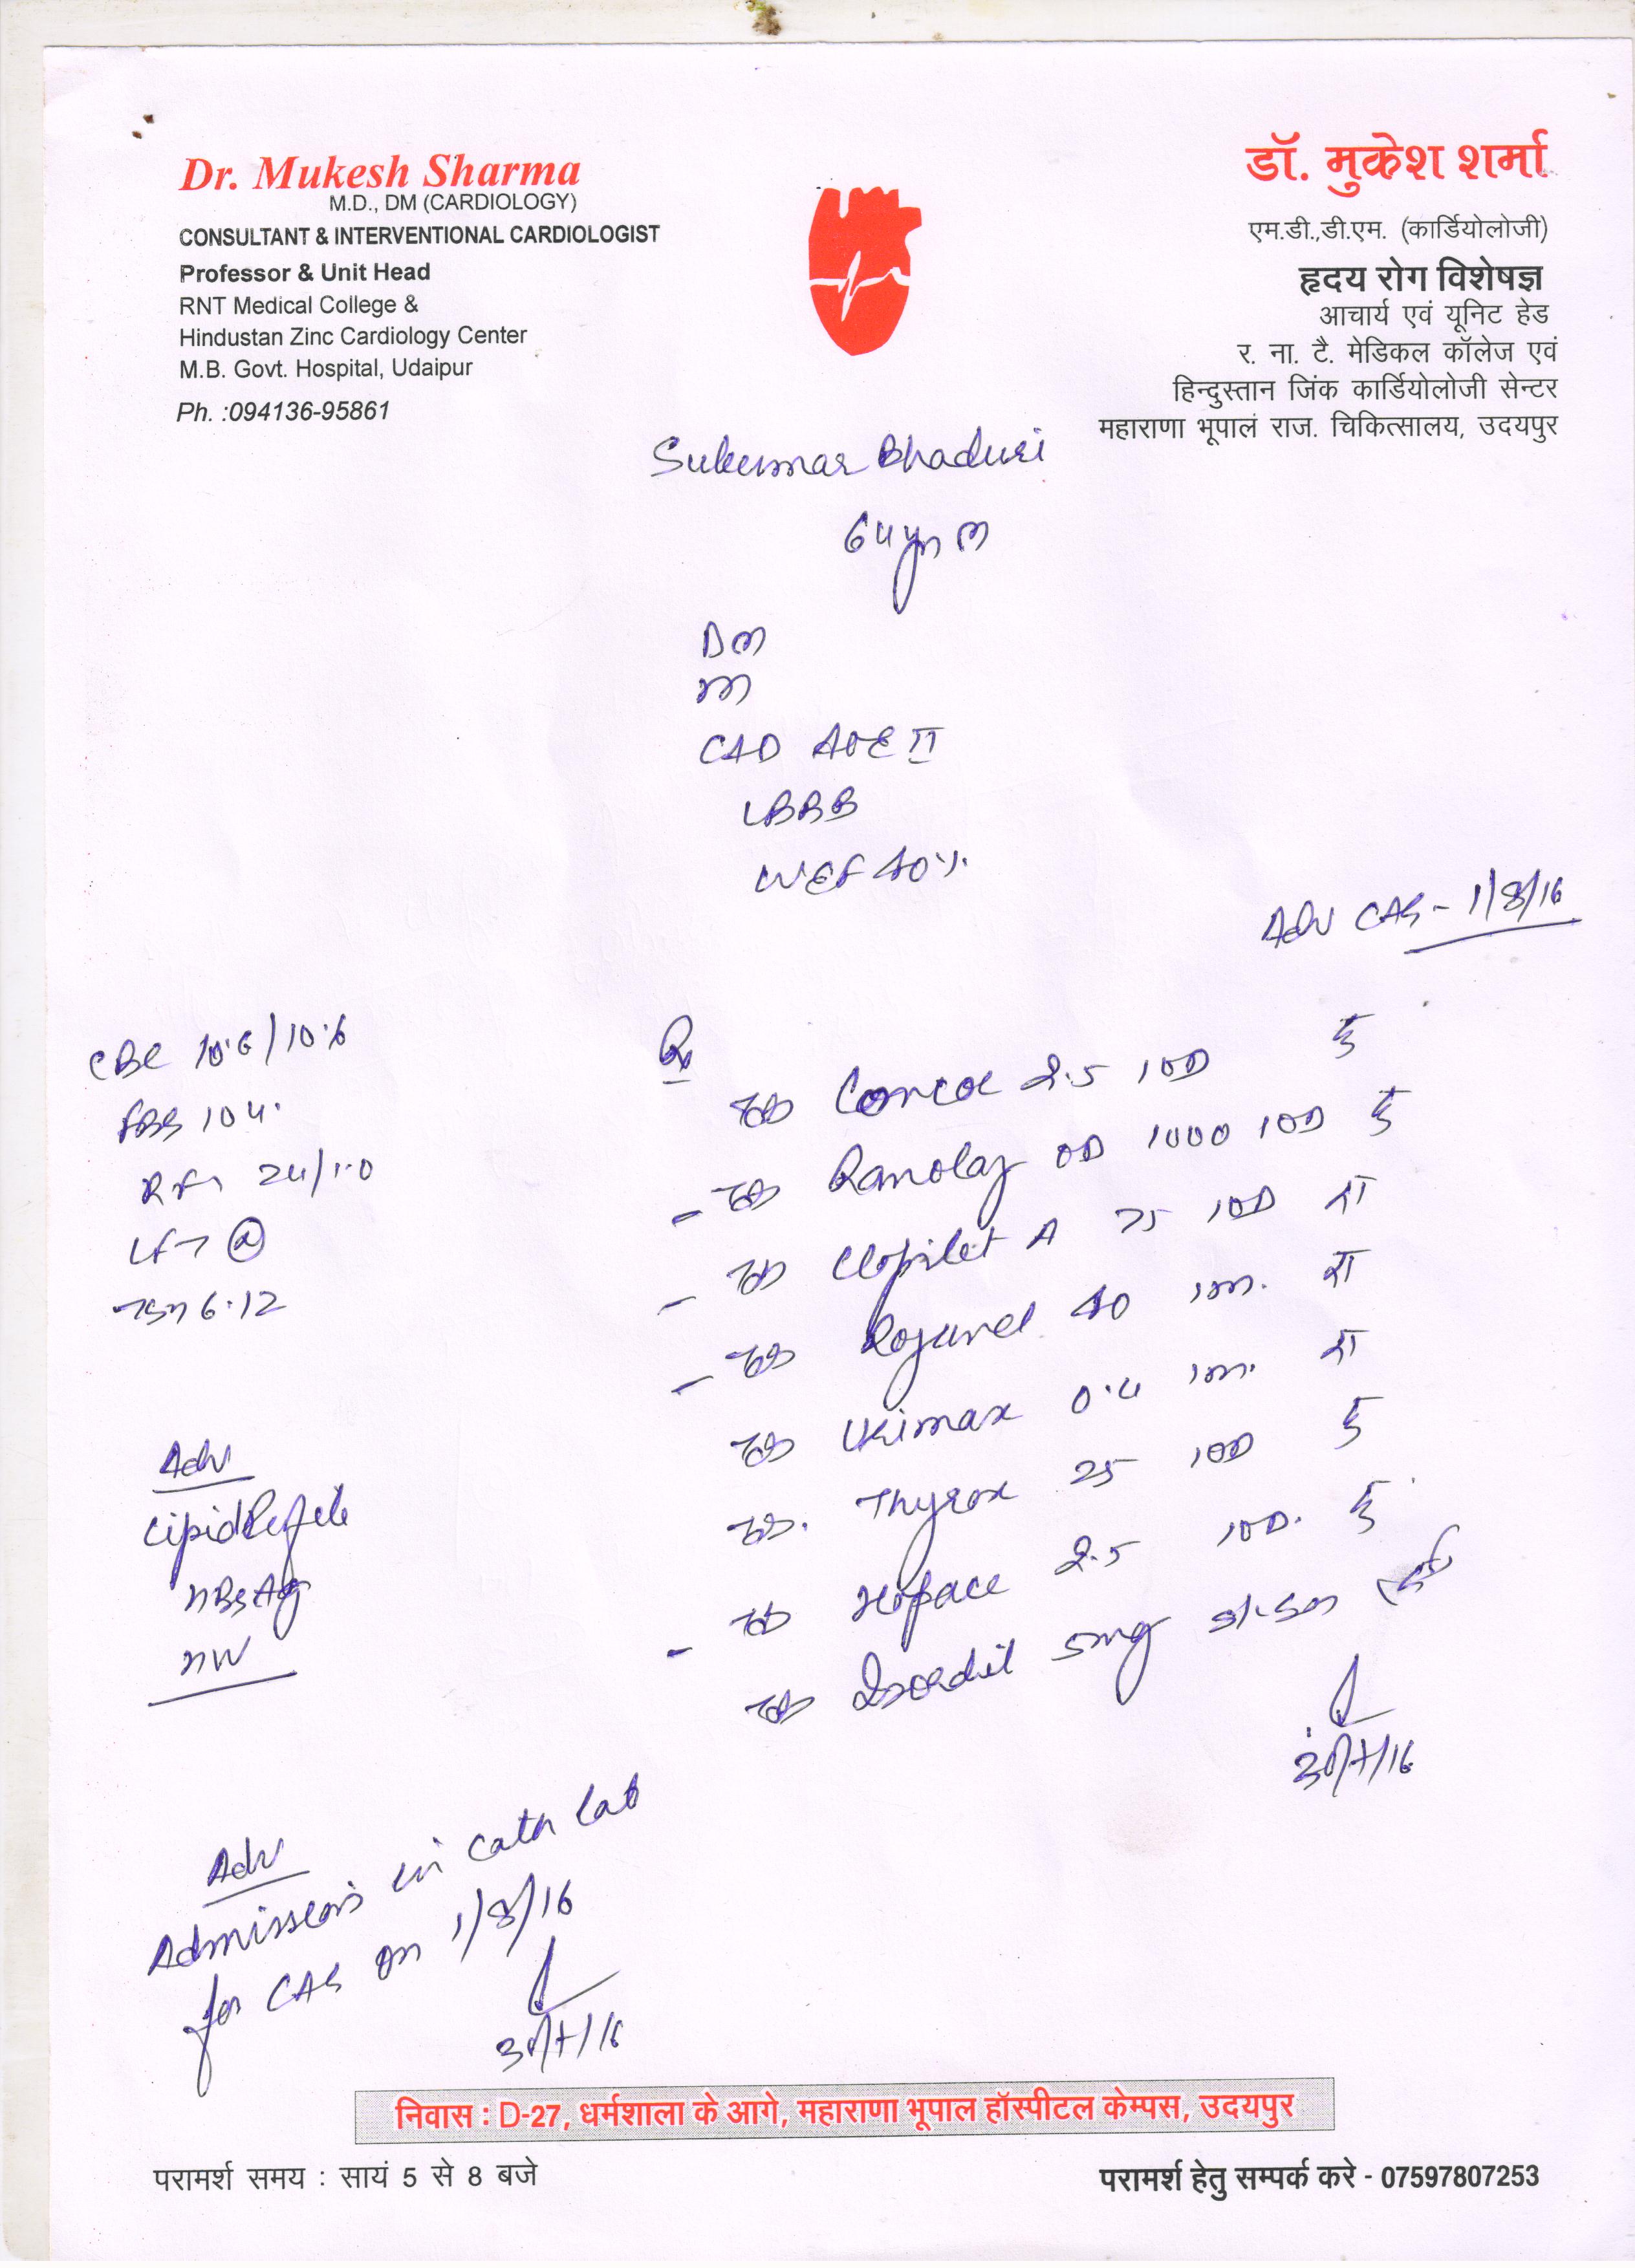 Dr. Mukesh Sharma
M.D., DM (CARDIOLOGY)
CONSULTANT & INTERVENTIONAL CARDIOLOGIST
Professor & Unit Head
RNT Medical College &
Hindustan Zinc Cardiology Center
M.B. Govt. Hospital, Udaipur
Ph. :094136-95861
डॉ. मुकेश शर्मा
एम.डी.,डी.एम. (कार्डियोलोजी)
हृदय रोग विशेषज्ञ
आचार्य एवं यूनिट हेड
र. ना. टै. मेडिकल कॉलेज एवं
हिन्दुस्तान जिंक कार्डियोलोजी सेन्टर
महाराणा भूपाल राज. चिकित्सालय, उदयपुर
Sukumar Bhaduri
64 yr M
DM
CAD AOE II
LBBB
LVEF 40%
Adv CAG - 1/8/16
CBC 10.6/10.6
FBS 104
RFT 24/1.0
LFT
TSH 6.12
Adv
Lipid Profile
HBsAg
HIV
Rx
Tab Concor 2.5 1 OD
- Tab Ranolaz OD 1000 1 OD
- Tab Clopilet A 75 1 OD
- Tab 40 1 HS
Tab Urimax 0.4 1 HS
Tab. Thyrox 25 1 OD
- Tab Hopace 2.5 1 OD.
Tab Isordil 5mg s/l SOS
30/7/16
Adv
Admission in Cath lab
for CAG on 1/8/16
30/7/16
निवास : D-27, धर्मशाला के आगे, महाराणा भूपाल हॉस्पीटल केम्पस, उदयपुर
परामर्श समय : सायं 5 से 8 बजे
परामर्श हेतु सम्पर्क करे - 07597807253